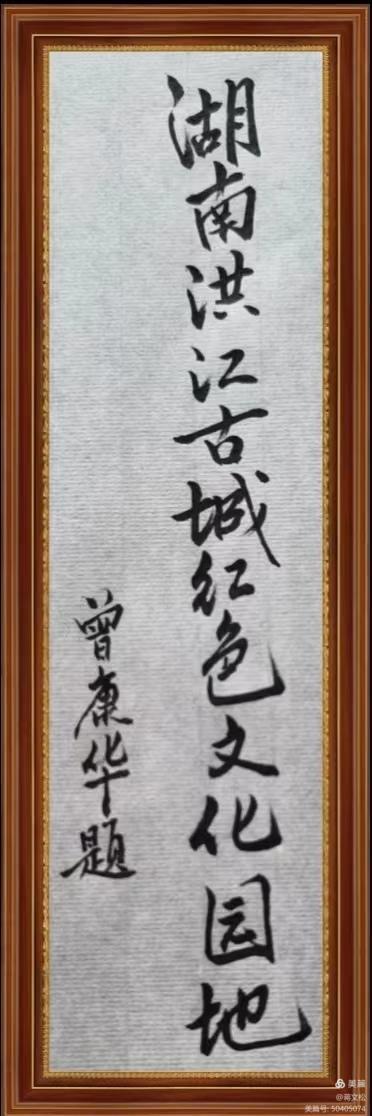 湖南洪江古城红色文化园地
曾康华题
美篇
@蒋文松
美篇号: 50405074